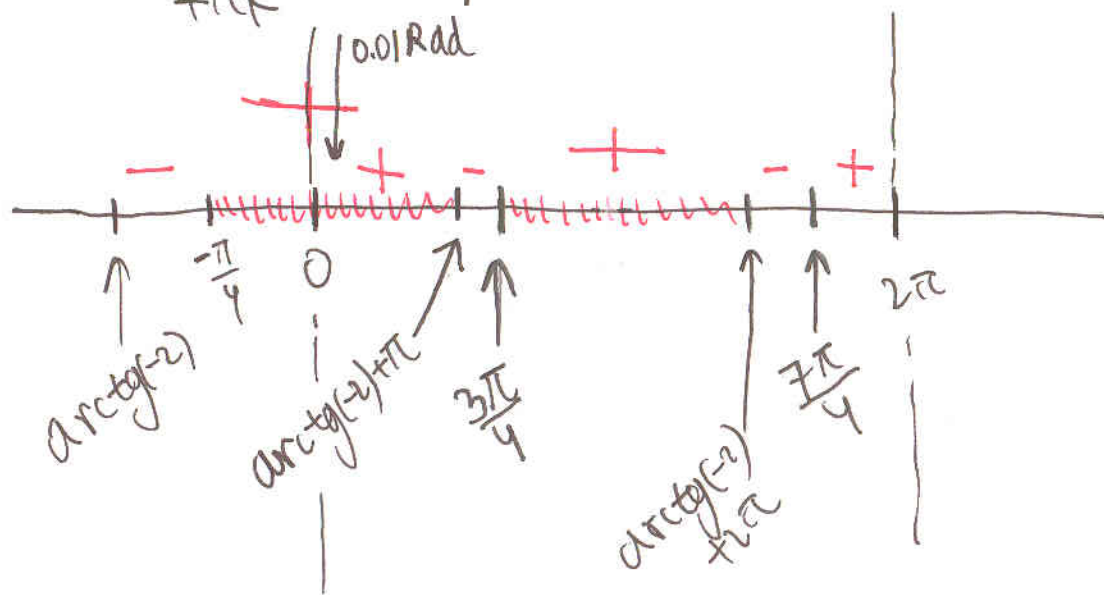 +πk
0.01 Rad
− + − + − +
-π/4
0
2π
arctg(-2)
arctg(-2)+π
3π/4
7π/4
arctg(-2)
+2π